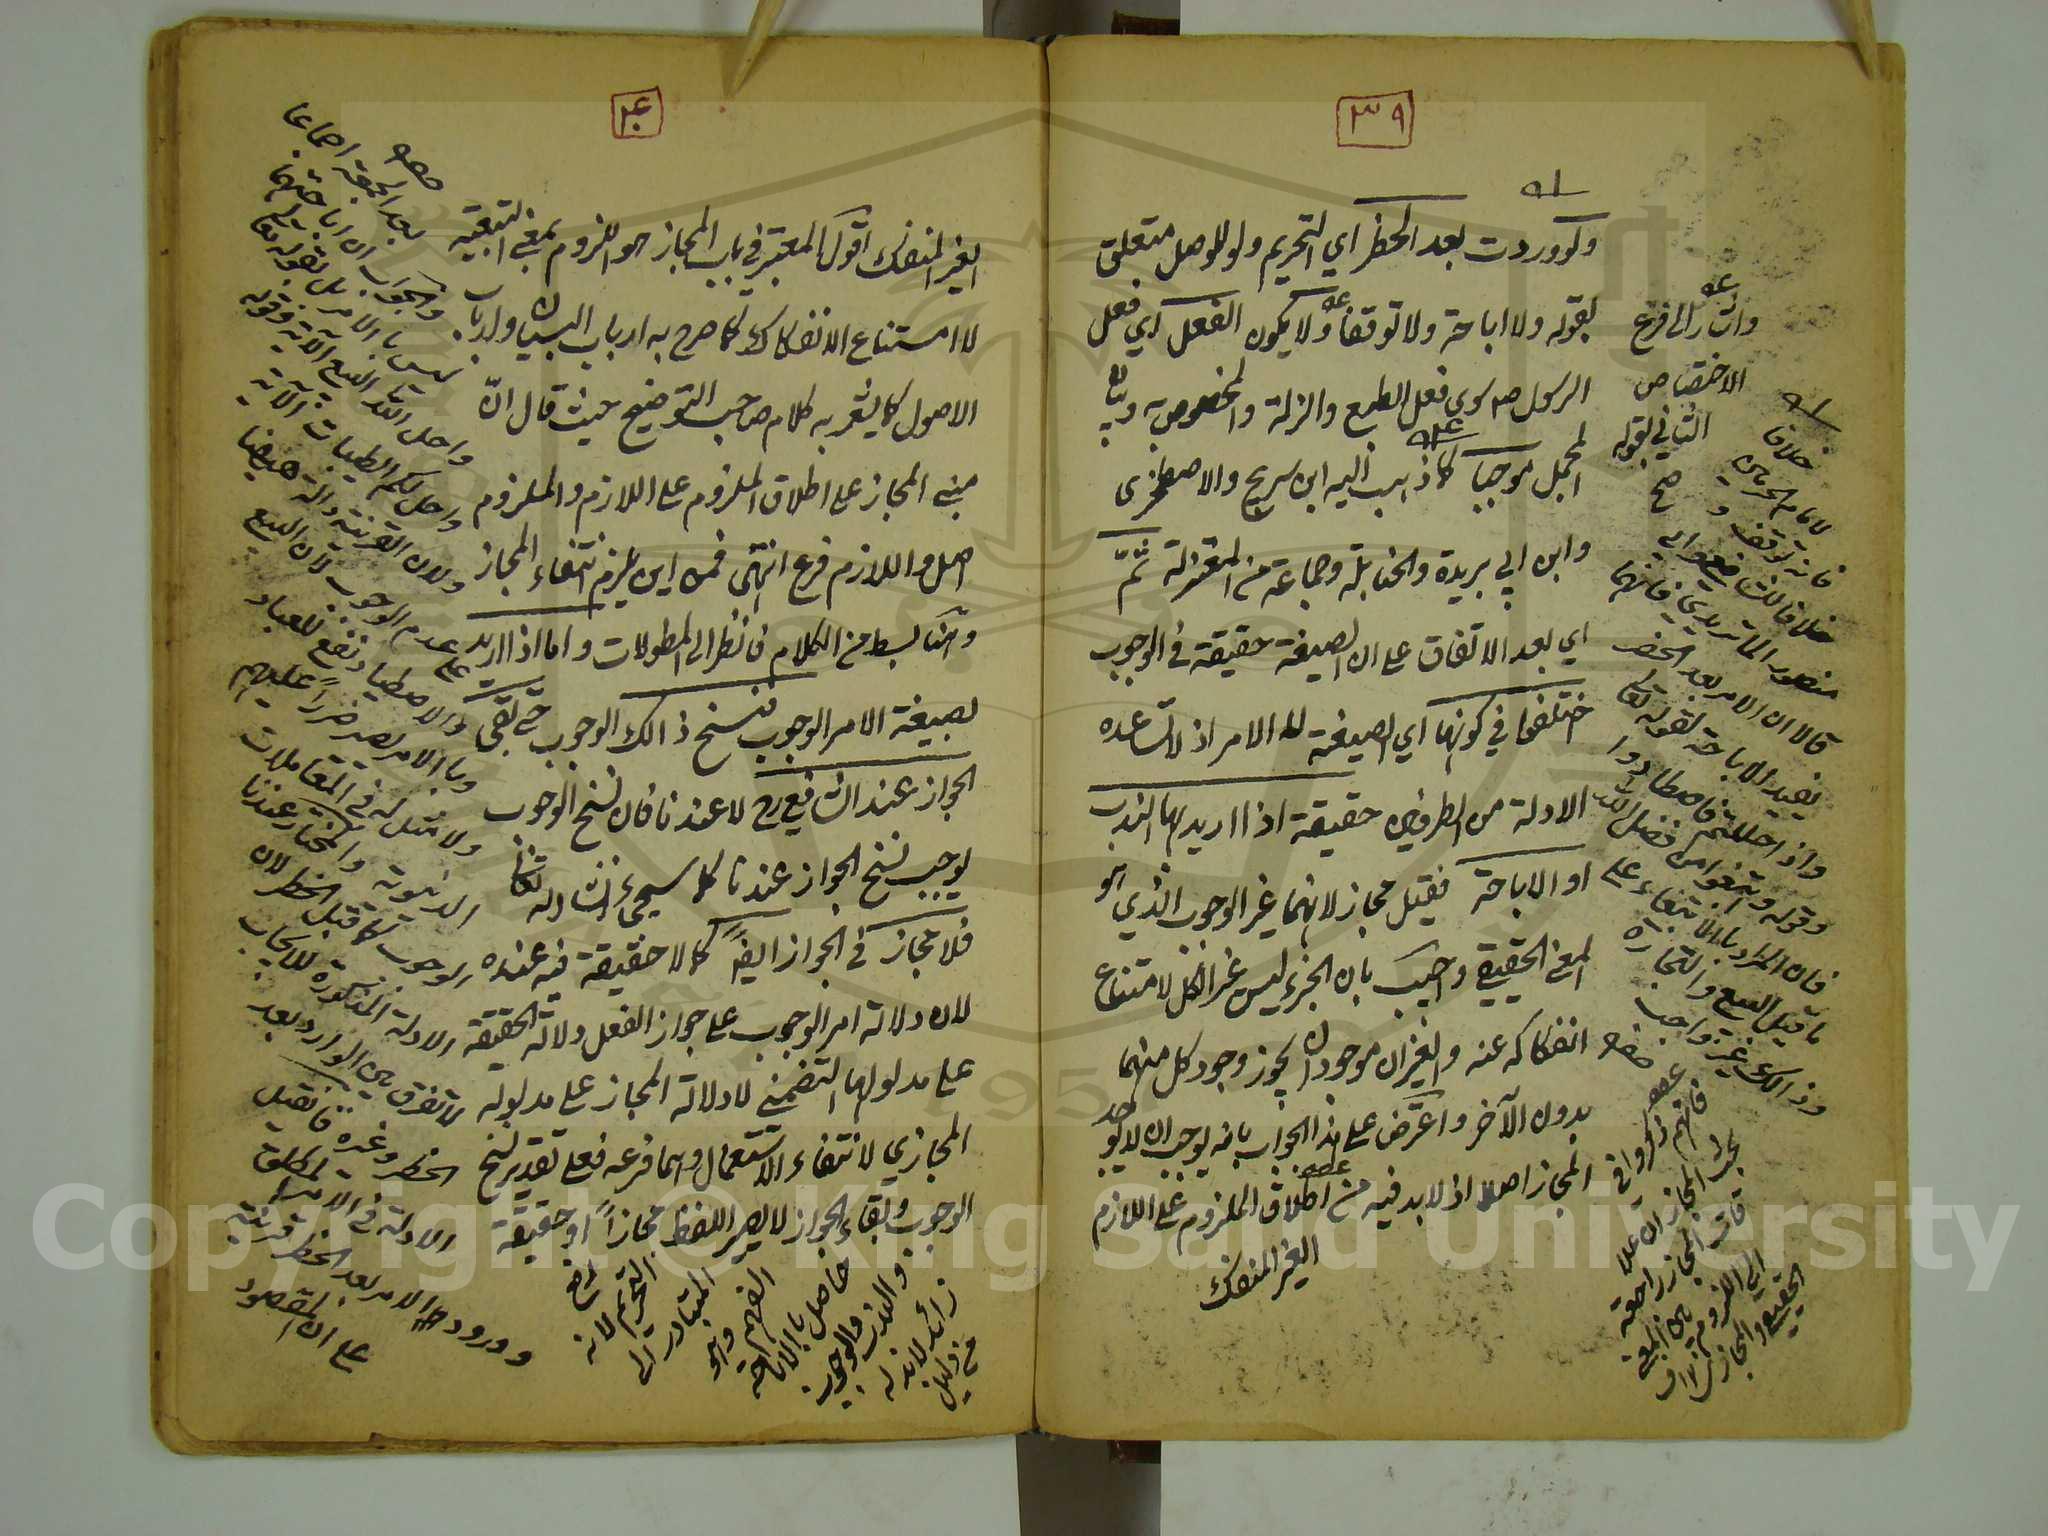 ٣٩
ولو وردت بعد الحظر اي التحريم ولو للوصل متعلق
بقوله ولا اباحة ولا توقفا ولا يكون الفعل اي فعل
الرسول صم سوى فعل الطبع والزلة والمخصوص به وبيان
المجمل موجبا كما ذهب اليه ابن سريج والاصطخري
وابن ابي بريدة والحنابلة وجماعة من المعتزلة ثم
اي بعد الاتفاق على ان الصيغة حقيقة في الوجوب
اختلفوا في كونها اي الصيغة الامر اذ لا تساعده
الادلة من الطرفين حقيقة اذا اريد بها الندب
او الاباحة فقيل مجاز لانهما غير الوجوب الذي هو
المعنى الحقيقي واجيب بان الجزء ليس غير الكل لامتناع
انفكاكه عنه والغيران موجودان يجوز وجود كل منهما
بدون الآخر واعترض على هذا الجواب بانه يوجب ان لا يوجد
المجاز اصلا اذ لا بد فيه من اطلاق الملزوم على اللازم
الغير المنفك
واشار الى فرع
الاختصاص
الثاني بقوله
صح
خلافا
لامام الحرمين
فانه توقف و
خلافا للشافعي وابي
منصور الماتريدي فانهما
قالا ان الامر بعد الحظر
يفيد الاباحة لقوله تعالى
واذا حللتم فاصطادوا
وقوله وابتغوا من فضل الله
فان المراد بالابتغاء على
ما قيل البيع والتجارة
وذالك غير واجب
فانهم ذكروا في
بحث المجاز ان علا
قات المجاز راجعة
الى اللزوم بين المعنى
الحقيقي والمجازي
٤٠
الغير المنفك اقول المعتبر في باب المجاز هو اللزوم بمعنى التبعية
لا امتناع الانفكاك كما صرح به ارباب البيان وارباب
الاصول كما يشعر به كلام صاحب التوضيح حيث قال ان
مبنى المجاز على اطلاق الملزوم على اللازم والملزوم
اصل واللازم فرع انتهى فمن اين يلزم انتفاء المجاز
وهنا بسط من الكلام فانظر الى المطولات واما اذا اريد
بصيغة الامر الوجوب فنسخ ذالك الوجوب حتى بقي
الجواز عند الشافعي رح لا عندنا فان نسخ الوجوب
يوجب نسخ الجواز عندنا كما سيجيء انشاء الله تعالى
فلا مجاز في الجواز ايضا كما لا حقيقة فيه عنده
لان دلالة امر الوجوب على جواز الفعل دلالة الحقيقة
على مدلولها التضمني لا دلالة المجاز على مدلوله
المجازي لانتفاء الاستعمال وهما فرعه فعلى تقدير نسخ
الوجوب وبقاء الجواز لا يصير اللفظ مجازا او حقيقة
بعد الجمعة اجماعا
والجواب ان اباحتهما
ليس بالامر بل بقوله تعالى
واحل الله البيع الآية وقوله
واحل لكم الطيبات الآية
ولان القرينة دالة هيهنا
على عدم الوجوب لان البيع
والاصطياد نفع للعباد
وبالامر يصير ضررا عليهم
ولا مثل له في المعاملات
الدنيوية والمختار عندنا
الوجوب كما قبل الحظر لان
الادلة المذكورة للايجاب
لا تفرق بين الوارد بعد
الحظر وغيره فان قيل
الادلة في الامر المطلق
وورود الامر بعد الحظر قرينة
على ان المقصود
رفع
التحريم لانه
المتبادر الى
الفهم وهو
حاصل بالاباحة
والندب والوجوب
زائد لا بد له
من دليل
Copy right © King Saud University